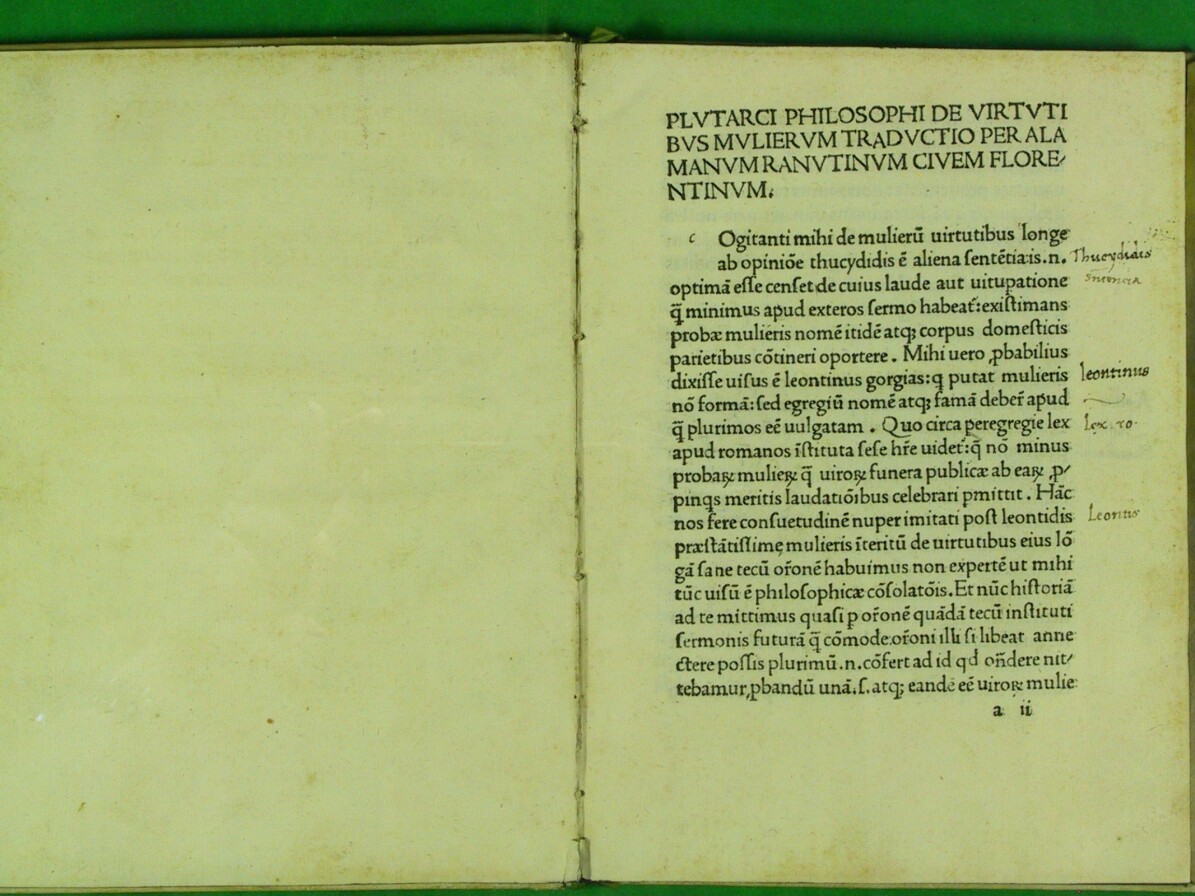 PLVTARCI PHILOSOPHI DE VIRTVTI
BVS MVLIERVM TRADVCTIO PER ALA
MANVM RANVTINVM CIVEM FLORE/
NTINVM;
c Ogitanti mihi de mulierū uirtutibus longe
ab opiniōe thucydidis ē aliena ſentētia:is.n. Thucydidis
optimā eſſe cenſet:de cuius laude aut uitupatione
q̄ minimus apud exteros ſermo habeat̄:exiſtimans
probæ mulieris nomē itidē atq; corpus domeſticis
parietibus cōtineri oportere. Mihi uero ꝓbabilius
dixiſſe uiſus ē leontinus gorgias:q putat mulieris leontinus
nō formā: ſed egregiū nomē atq; famā deber̄ apud
q̄ plurimos eē uulgatam. Quo circa peregregie lex lex ro.
apud romanos īſtituta ſeſe hr̄e uidet̄:q̄ nō minus
probaꝝ mulieꝝ q̄ uiroꝝ funera publicæ ab eaꝝ ꝓ/
pinqs meritis laudatiōibus celebrari pmittit. Hāc
nos fere conſuetudinē nuper imitati poſt leontidis Leontis
præſtātiſſimę mulieris īteritū de uirtutibus eius lō
gā ſane tecū or̄onē habuimus non expertē ut mihi
tūc uiſū ē philoſophicæ cōſolatōis. Et nūc hiſtoriā
ad te mittimus quaſi p or̄onē quādā tecū inſtituti
ſermonis futurā q̄ cōmode:or̄oni illi ſi libeat anne
ctere poſſis plurimū.n.cōfert ad id qd on̄dere nit/
tebamur,ꝓbandū unā.ſ.atq; eandē eē uiroꝝ mulie
a ii